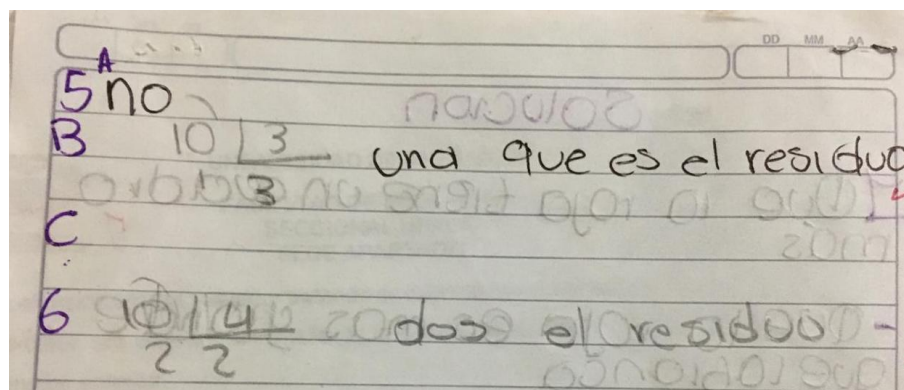 DD MM AA
A
5 no
B 10 | 3 una que es el residuo
1 3
C
6 10 | 4 dos el residuo
2 2